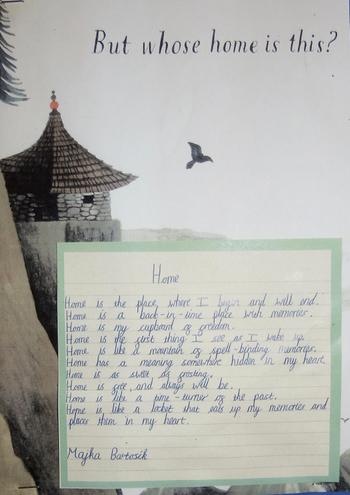 But whose home is this?
Home
Home is the place, where I begin and will end.
Home is a back-in-time place with memories.
Home is my cupboard of freedom.
Home is the first thing I see as I wake up.
Home is like a mountain of spell-binding memories.
Home has a meaning somewhere hidden in my heart.
Home is as sweet as frosting.
Home is free and always will be.
Home is like a time-turner of the past.
Home is like a locket that eats up my memories and
places them in my heart.
Majka Bartosik